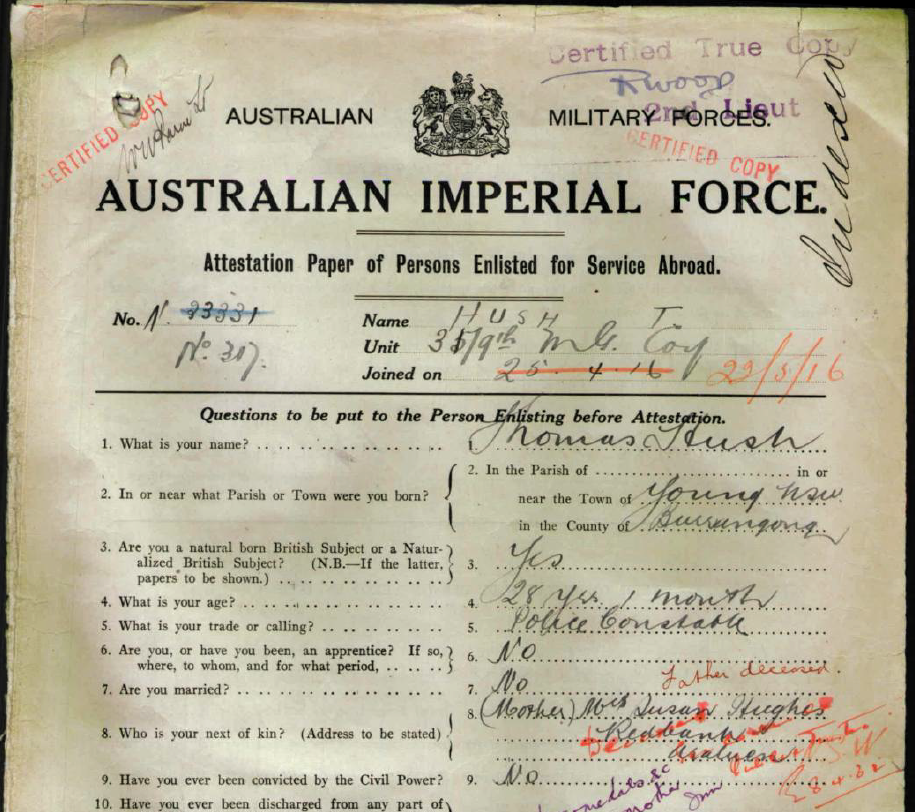 Certified True Copy
RWood
2nd Lieut
CERTIFIED COPY
CERTIFIED COPY
Indexed
AUSTRALIAN MILITARY FORCES.
AUSTRALIAN IMPERIAL FORCE.
Attestation Paper of Persons Enlisted for Service Abroad.
No. N. 23331
No. 317.
Name HUSH T
Unit 35/9th M.G. Coy
Joined on 25.4.16 22/5/16
Questions to be put to the Person Enlisting before Attestation.
1. What is your name? 1. Thomas Hush
2. In or near what Parish or Town were you born? 2. In the Parish of in or
near the Town of Young NSW
in the County of Burrangong
3. Are you a natural born British Subject or a Natur-
alized British Subject? (N.B.—If the latter,
papers to be shown.) 3. Yes
4. What is your age? 4. 28 yrs 1 month
5. What is your trade or calling? 5. Police Constable
6. Are you, or have you been, an apprentice? If so,
where, to whom, and for what period, 6. No
7. Are you married? 7. No
Father deceased.
8. Who is your next of kin? (Address to be stated) 8. (Mother) Mrs Susan Hughes
Redbank
9. Have you ever been convicted by the Civil Power? 9. No
10. Have you ever been discharged from any part of